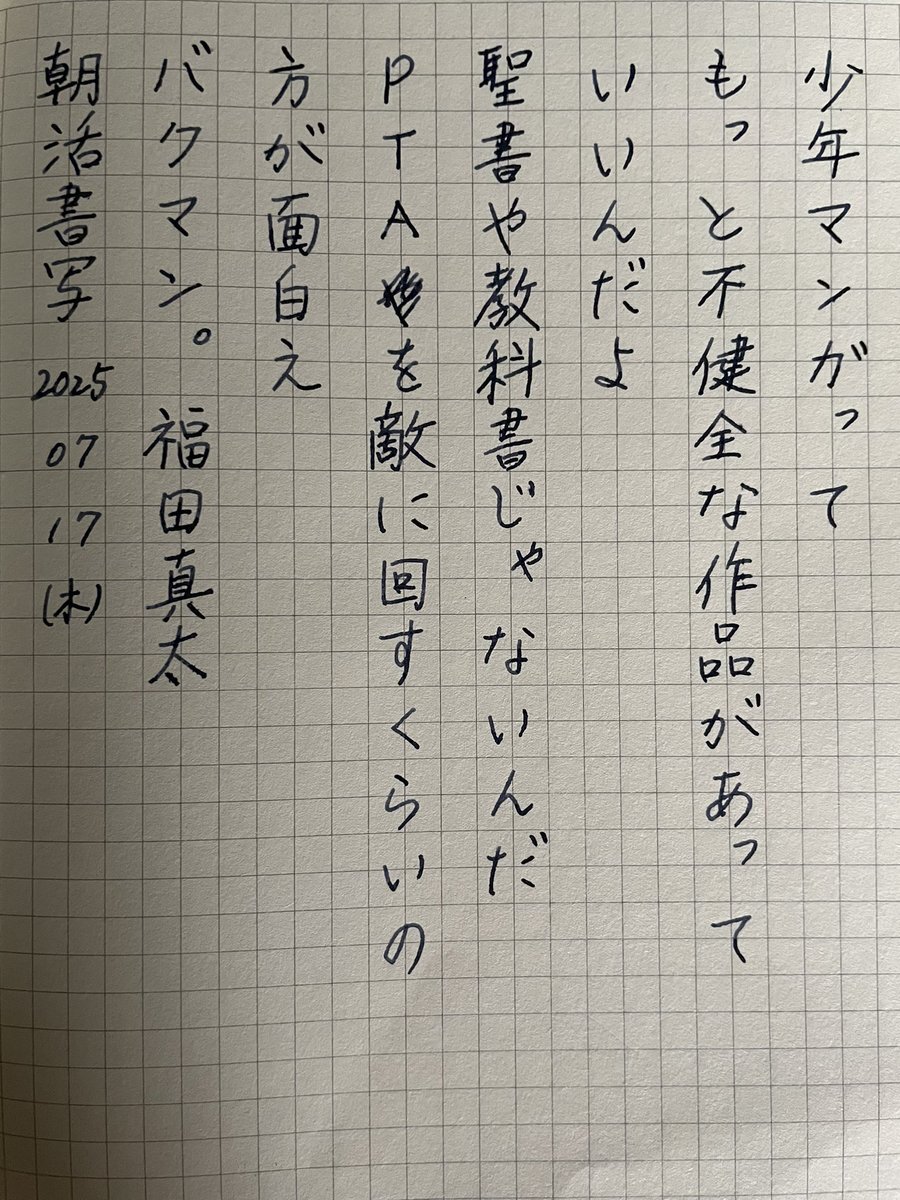 少年マンガって
もっと不健全な作品があって
いいんだよ
聖書や教科書じゃないんだ
PTAを敵に回すくらいの
方が面白え
バクマン。福田真太
朝活書写 2025 07 17 (木)